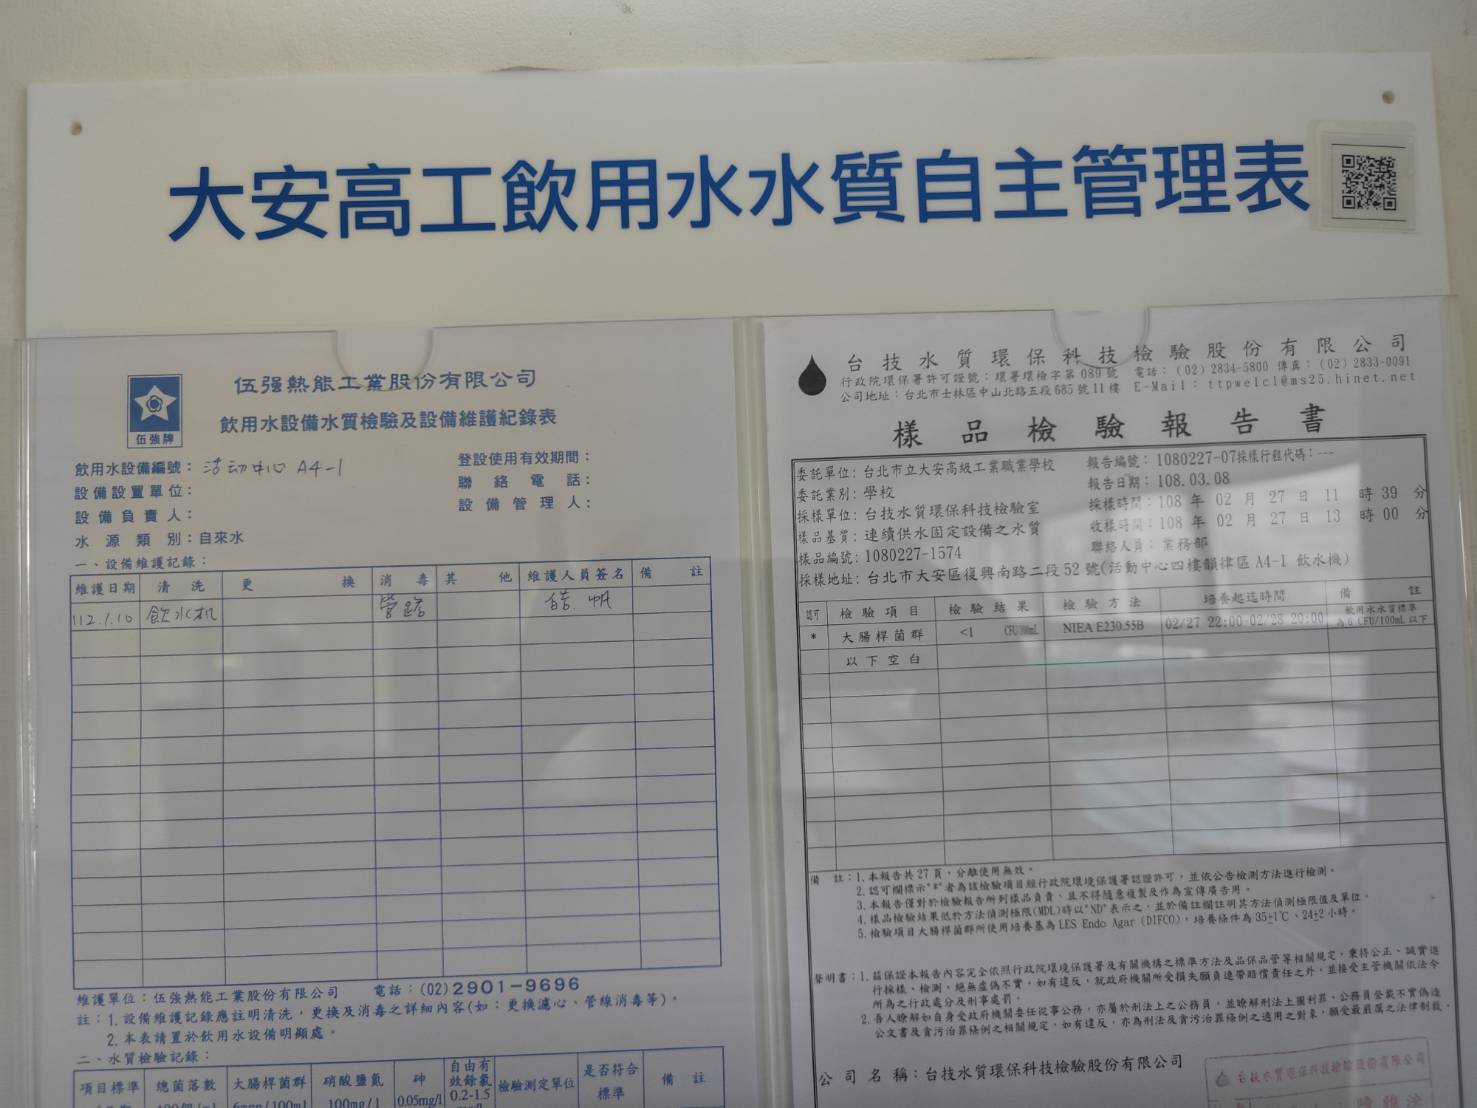 大安高工飲用水水質自主管理表
伍強牌
伍强熱能工業股份有限公司
飲用水設備水質檢驗及設備維護紀錄表
飲用水設備編號：活动中心 A4-1
登設使用有效期間：
設備設置單位：
聯絡電話：
設備負責人：
設備管理人：
水源類別：自來水
一、設備維護記錄：
維護日期 清洗 更換 消毒 其他 維護人員簽名 備註
112.1.10 飲水机 管路
維護單位：伍强熱能工業股份有限公司 電話：(02)2901-9696
註：1.設備維護記錄應註明清洗，更換及消毒之詳細內容(如：更換濾心、管線消毒等)。
2.本表請置於飲用水設備明顯處。
二、水質檢驗記錄：
項目標準 總菌落數 大腸桿菌群 硝酸鹽氮 砷 自由有效餘氯 檢驗測定單位 是否符合標準 備註
100mg/l 0.05mg/l 0.2-1.5
台技水質環保科技檢驗股份有限公司
行政院環保署許可證號：環署環檢字第089號 電話：(02)2834-5800 傳真：(02)2833-0091
公司地址：台北市士林區中山北路五段685號11樓 E-Mail：ttpwelcl@ms25.hinet.net
樣品檢驗報告書
委託單位：台北市立大安高級工業職業學校
報告編號：1080227-07採樣行程代碼：---
委託業別：學校
報告日期：108.03.08
採樣單位：台技水質環保科技檢驗室
採樣時間：108 年 02 月 27 日 11 時 39 分
樣品基質：連續供水固定設備之水質
收樣時間：108 年 02 月 27 日 13 時 00 分
樣品編號：1080227-1574
聯絡人員：業務部
採樣地址：台北市大安區復興南路二段52號(活動中心四樓韻律區 A4-1 飲水機)
認可 檢驗項目 檢驗結果 檢驗方法 培養起迄時間 備註
* 大腸桿菌群 <1 CFU/100mL NIEA E230.55B 02/27 22:00-02/28 20:00 飲用水水質標準為6 CFU/100mL以下
以下空白
備註：1.本報告共27頁，分離使用無效。
2.認可欄標示"*"者為該檢驗項目經行政院環境保護署認證許可，並依公告檢測方法進行檢測。
3.本報告僅對於檢驗報告所列樣品負責，且不得隨意複製及作為宣傳廣告用。
4.樣品檢驗結果低於方法偵測極限(MDL)時以"ND"表示之，並於備註欄註明其方法偵測極限值及單位。
5.檢驗項目大腸桿菌群所使用培養基為LES Endo Agar (DIFCO)，培養條件為35±1℃、24±2小時。
聲明書：1.茲保證本報告內容完全依照行政院環境保護署及有關機構之標準方法及品保品管等相關規定，秉持公正、誠實進
行採樣、檢測。絕無虛偽不實，如有違反，就政府機關所受損失願負連帶賠償責任之外，並接受主管機關依法令
所為之行政處分及刑事處罰。
2.吾人瞭解如自身受政府機關委任從事公務，亦屬於刑法上之公務員，並瞭解刑法上圖利罪、公務員登載不實偽造
公文書及貪污治罪條例之相關規定，如有違反，亦為刑法及貪污治罪條例之適用之對象，願受最嚴厲之法律制裁。
公司名稱：台技水質環保科技檢驗股份有限公司
台技水質環保科技檢驗股份有限公司